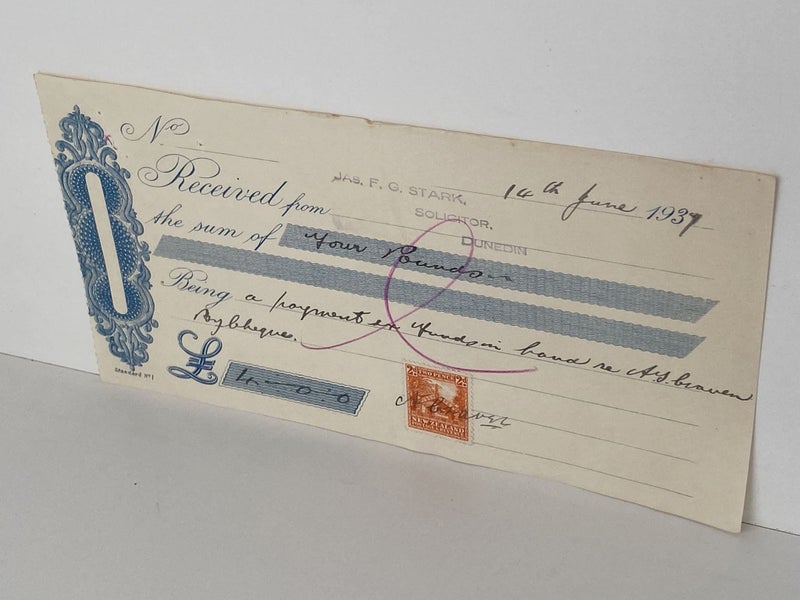 No
14th June 1937
Received from
JAS. F. G. STARK,
SOLICITOR,
DUNEDIN
the sum of Four Pounds
Being a payment ex Funds in hand re A.S. Craven
By Cheque.
£ 4-0-0
Standard No 1
TWO PENCE
NEW ZEALAND
A Craven